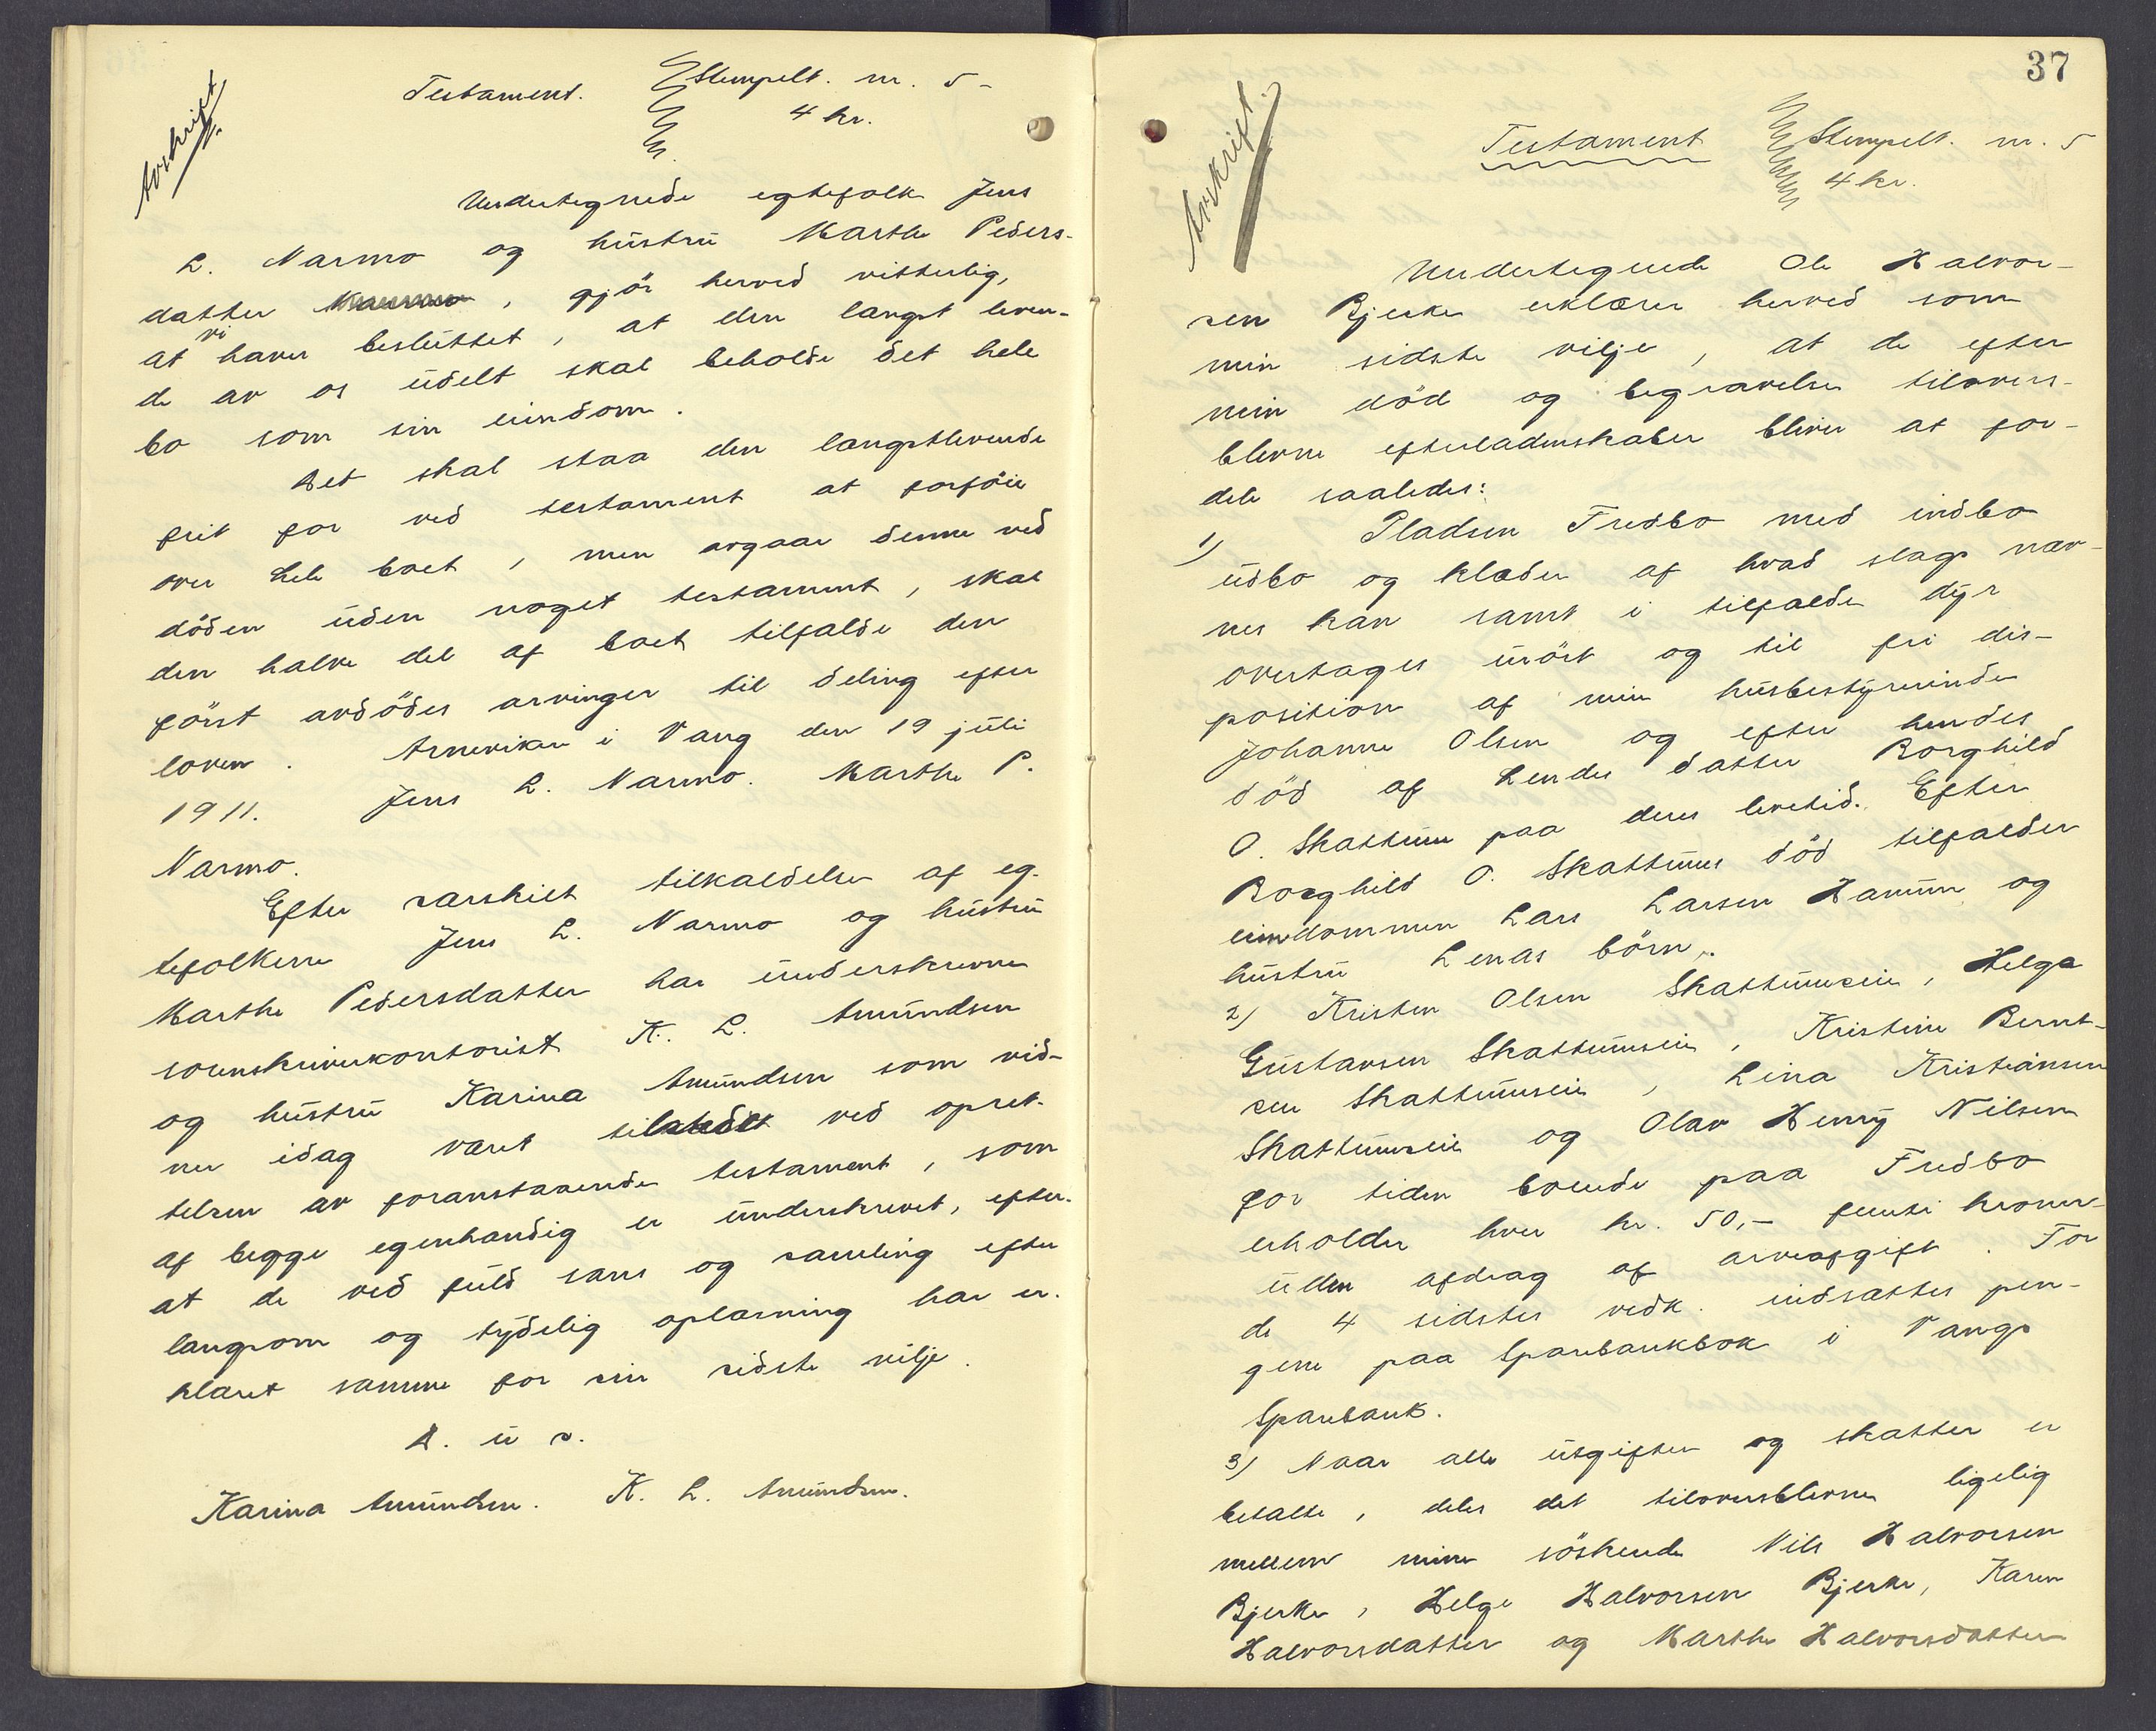 Avskrift.
Testament. Stempelt. nr. 5 -
4 kr.
Undertegnede egtefolk Jens
L. Narmo og hustru Marthe Peders-
datter, gjør herved vitterlig,
at vi haver besluttet, at den længst leven-
de av os udelt skal beholde det hele
bo som sin eiendom.
Det skal staa den længstlevende
frit for ved testament at forføie
over hele boet, men avgaar denne ved
døden uden noget testament, skal
den halve del af boet tilfalde den
først avdødes arvinger til deling efter
loven. Arneviken i Vang den 19 juli
1911. Jens L. Narmo. Marthe P.
Narmo.
Efter særskilt tilkaldelse af eg-
tefolkene Jens L. Narmo og hustru
Marthe Pedersdatter har underskrevne
sorenskriverkontorist K. L. Amundsen
og hustru Karina Amundsen som vid-
ner idag været tilstede ved opret-
telsen av foranstaaende testament, som
af begge egenhændig er underskrevet, efter
at de ved fuld sans og samling efter
langsom og tydelig oplæsning har er-
klæret samme for sin sidste vilje.
D. u s.
Karina Amundsen. K. L. Amundsen.
37
Avskrift.
Testament Stempelt. nr. 5
4 kr.
Undertegnede Ole Halvor-
sen Bjerke erklærer herved som
min sidste vilje, at de efter
min død og begravelse tilovers-
blevne efterladenskaber bliver at for-
dele saaledes:
1) Pladsen Fredbo med indbo
udbo og klæder af hvad slags næv-
nes kan samt i tilfælde dyr
overtages urørt og til fri dis-
position af min husbestyrerinde
Johanne Olsen og efter hendes
død af hendes datter Borghild
O. Skattum paa deres levetid. Efter
Borghild O. Skattums død tilfalder
eiendommen Lars Larsen Hamum og
hustru Lenas børn.
2) Kristen Olsen Skattumseie, Helga
Gustavsen Skattumseie, Kristine Bernt-
sen Skattumseie, Lina Kristiansen
Skattumseie og Olav Henry Nilsen
for tiden boende paa Fredbo
erholder hver kr. 50,- femti kroner-
uden afdrag af arveafgift. For
de 4 sidstes vedk. indsættes pen-
gene paa Sparebankbok i Vangs
Sparebank.
3) Naar alle utgifter og skatter er
betalte, deles det tiloversblevne ligelig
mellem mine søskende Nils Halvorsen
Bjerke, Helge Halvorsen Bjerke, Karen
Halvorsdatter og Marthe Halvorsdatter